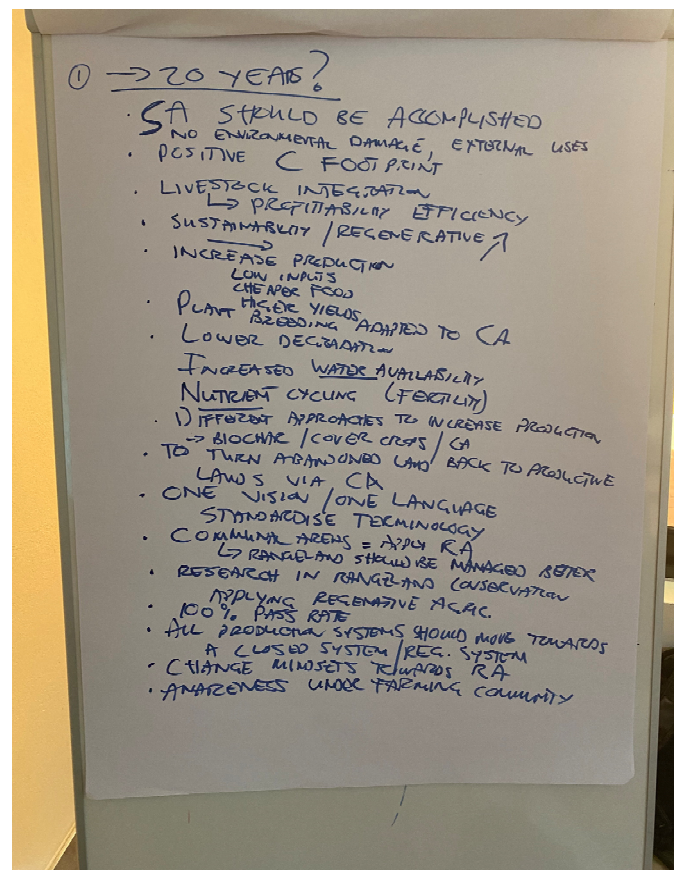 ① → 20 YEARS?
· SA SHOULD BE ACCOMPLISHED
NO ENVIRONMENTAL DAMAGE, EXTERNAL USES
· POSITIVE C FOOTPRINT
· LIVESTOCK INTEGRATION
↳ PROFITABILITY EFFICIENCY
· SUSTAINABILITY / REGENERATIVE ↗
→
· INCREASE PRODUCTION
LOW INPUTS
CHEAPER FOOD
HIGER YIELDS
· PLANT BREEDING ADAPTED TO CA
· LOWER DEGRADATION
INCREASED WATER AVAILABILITY
NUTRIENT CYCLING (FERTILITY)
· DIFFERENT APPROACHES TO INCREASE PRODUCTION
→ BIOCHAR / COVER CROPS / CA
· TO TURN ABANDONED LAND BACK TO PRODUCTIVE
LANDS VIA CA
· ONE VISION / ONE LANGUAGE
STANDARDISE TERMINOLOGY
· COMMUNAL AREAS = APPLY RA
↳ RANGELAND SHOULD BE MANAGED BETER
· RESEARCH IN RANGELAND CONSERVATION
APPLYING REGENATIVE AGRIC.
· 100% PASS RATE
· ALL PRODUCTION SYSTEMS SHOULD MOVE TOWARDS
A CLOSED SYSTEM / REG. SYSTEM
· CHANGE MINDSETS TOWARDS RA
· AWARENESS UNDER FARMING COMMUNITY